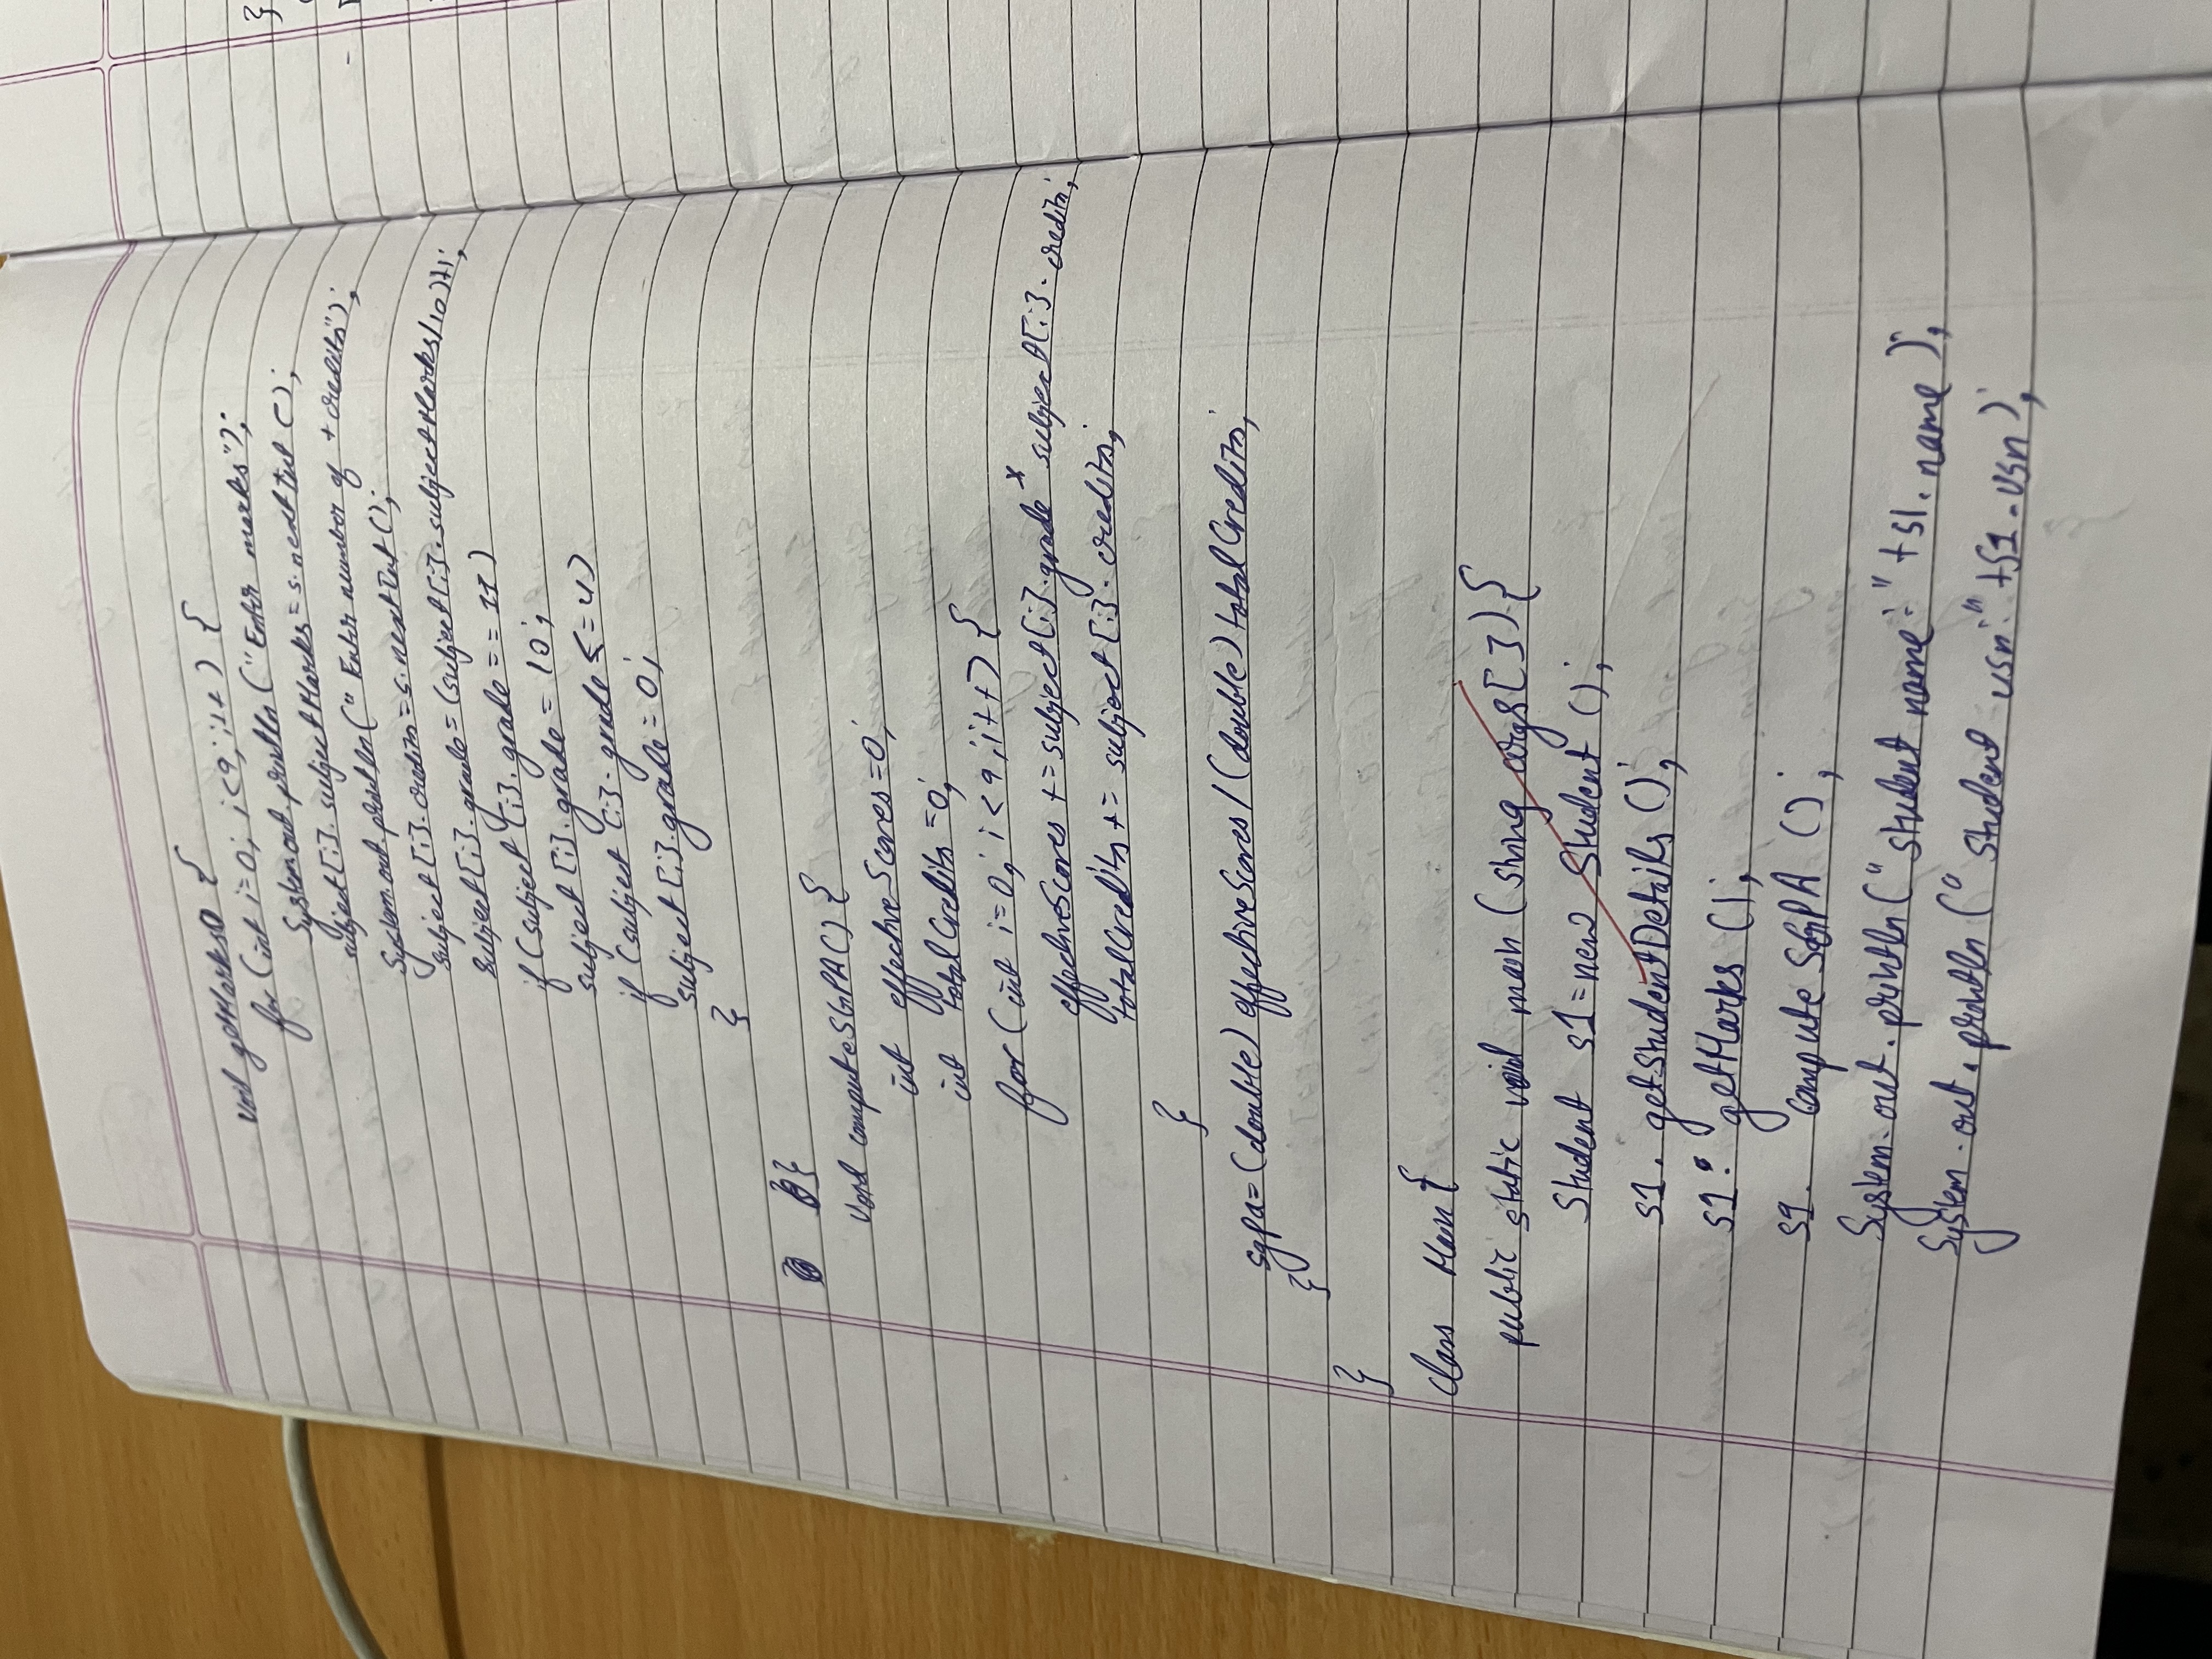 void getMarks() {
for (int i=0; i<9; i++) {
System.out.println ("Enter marks");
subject[i].subjectMarks = s.nextInt ();
System.out.println (" Enter number of + credits");
subject [i].credits = s.nextInt ();
subject[i].grade = (subject[i].subjectMarks/10)+1;
if (subject [i].grade == 11)
subject [i].grade = 10;
if (subject [i].grade <=4)
subject [i].grade = 0;
}
}
void computeSGPA() {
int effectiveScores=0;
int totalCredits =0;
for (int i=0; i<9; i++) {
effectiveScores += subject[i].grade * subject[i].credits;
totalCredits += subject [i].credits;
}
sgpa=(double) effectiveScores / (double) totalCredits;
}
}
class Main {
public static void main (String args[ ]) {
Student s1=new Student ();
s1. getStudentDetails ();
s1. getMarks ();
s1. compute SGPA ();
System.out.println ("student name:" +s1.name );
System.out.println (" Student usn:" +s1.usn );
}